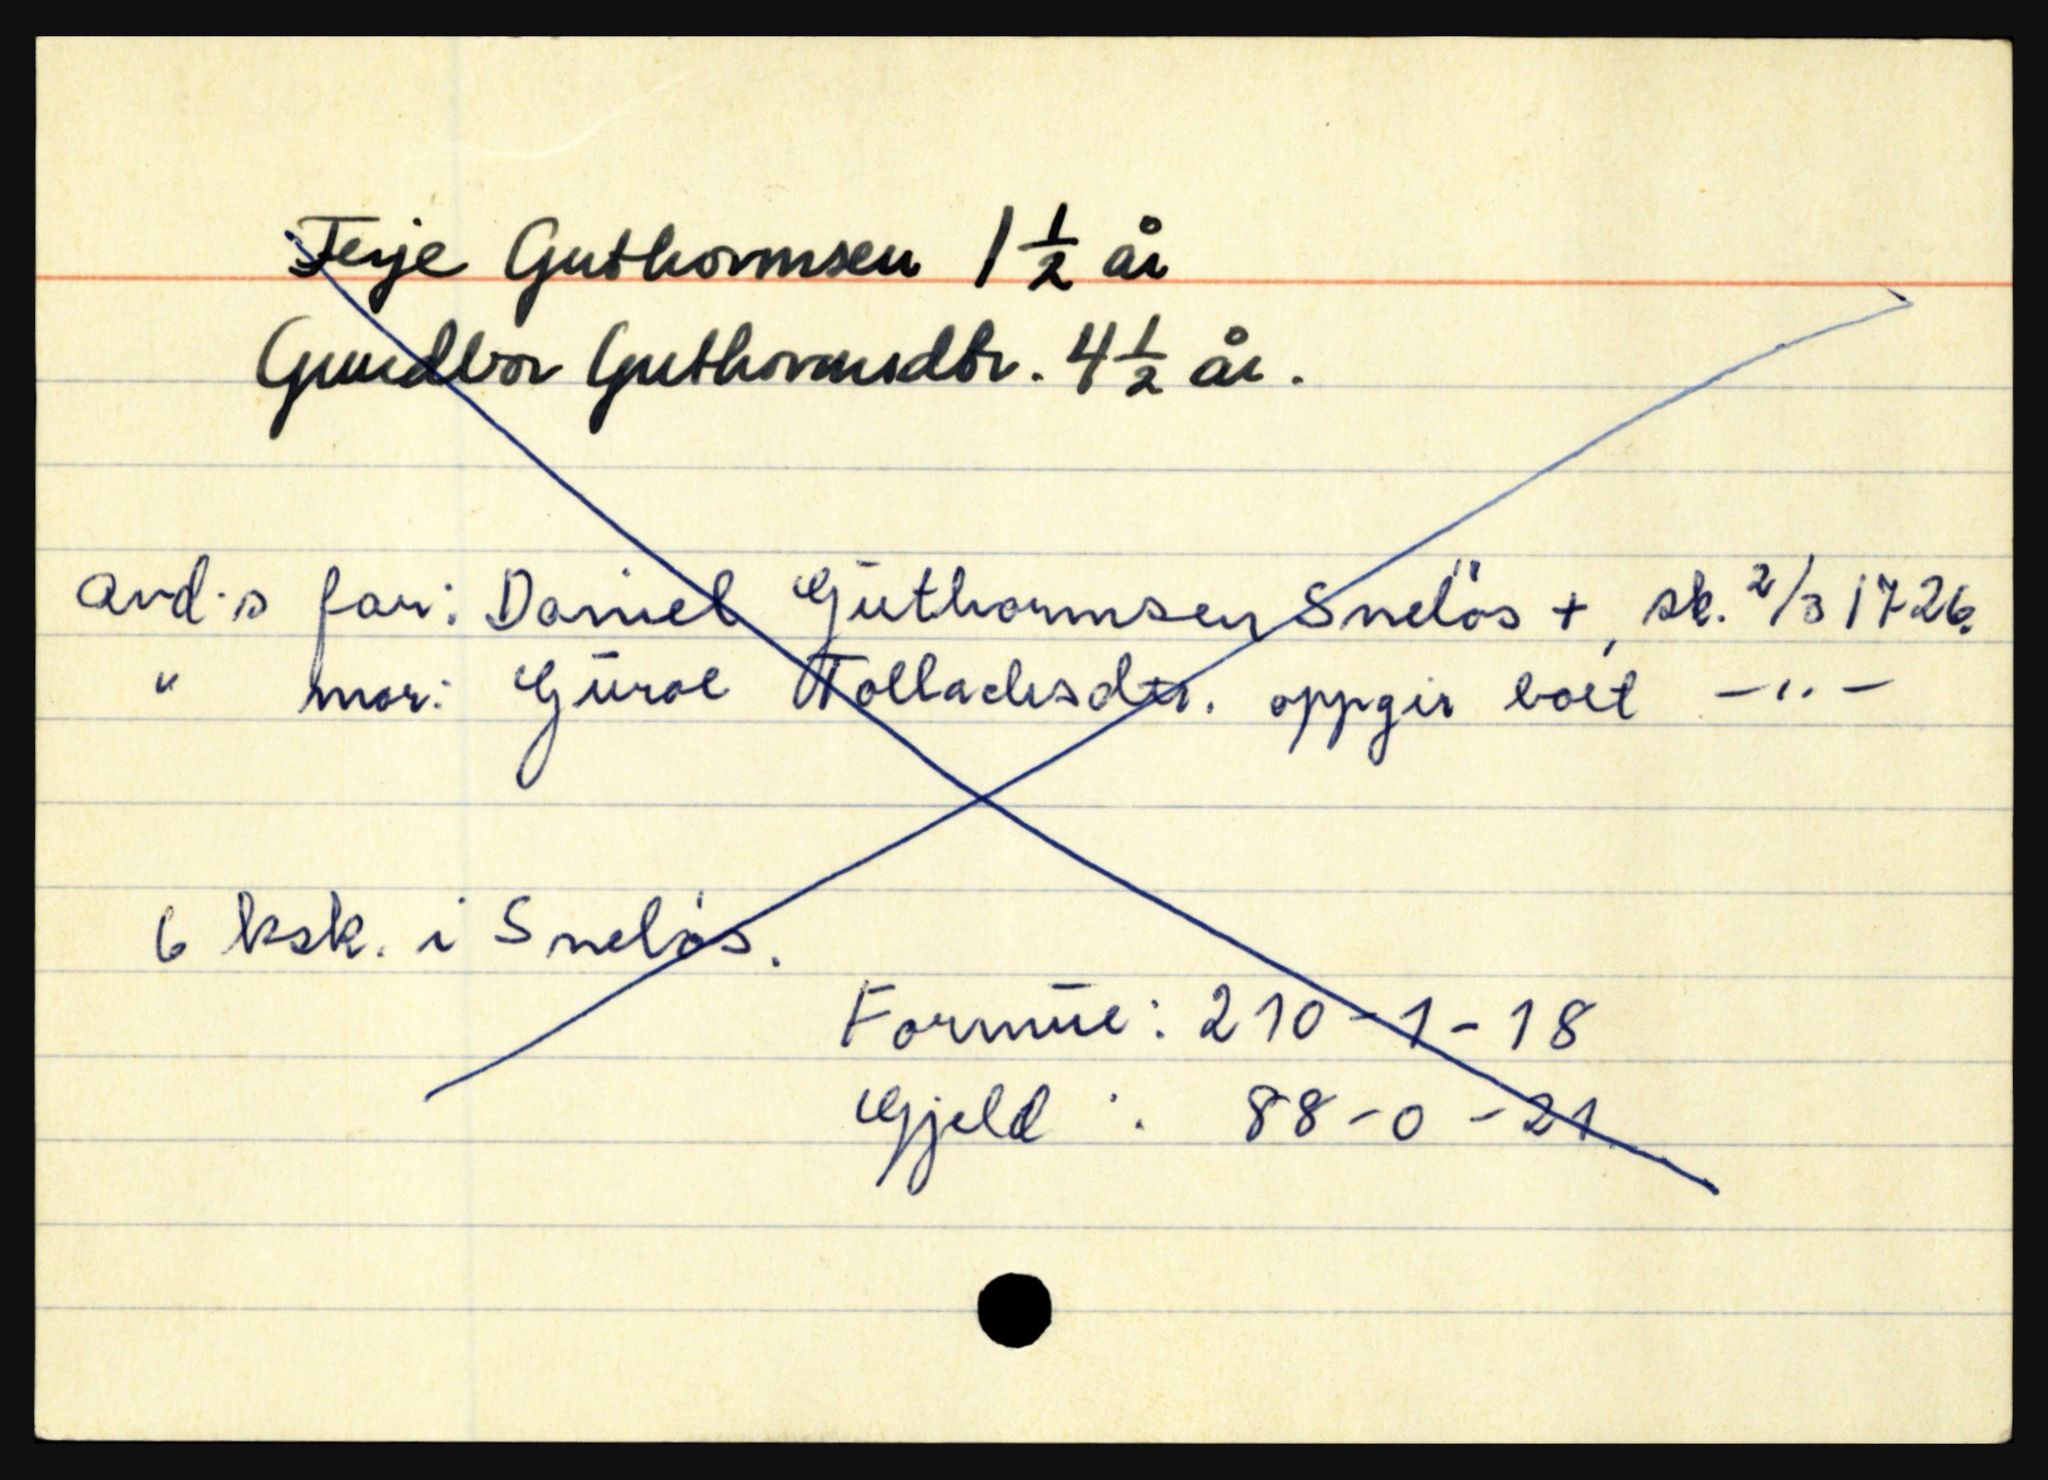 Terje Guthormsen 1 1/2 år
Gundbor Guthormsdtr. 4 1/2 år.
avd.s far: Daniel Guthormsen Snelös +, sk. 2/3 1726.
" mor: Guroe Tollachsdtr. oppgir boet -"-
6 ksk. i Snelös.
Formue: 210-1-18
Gjeld : 88-0-21